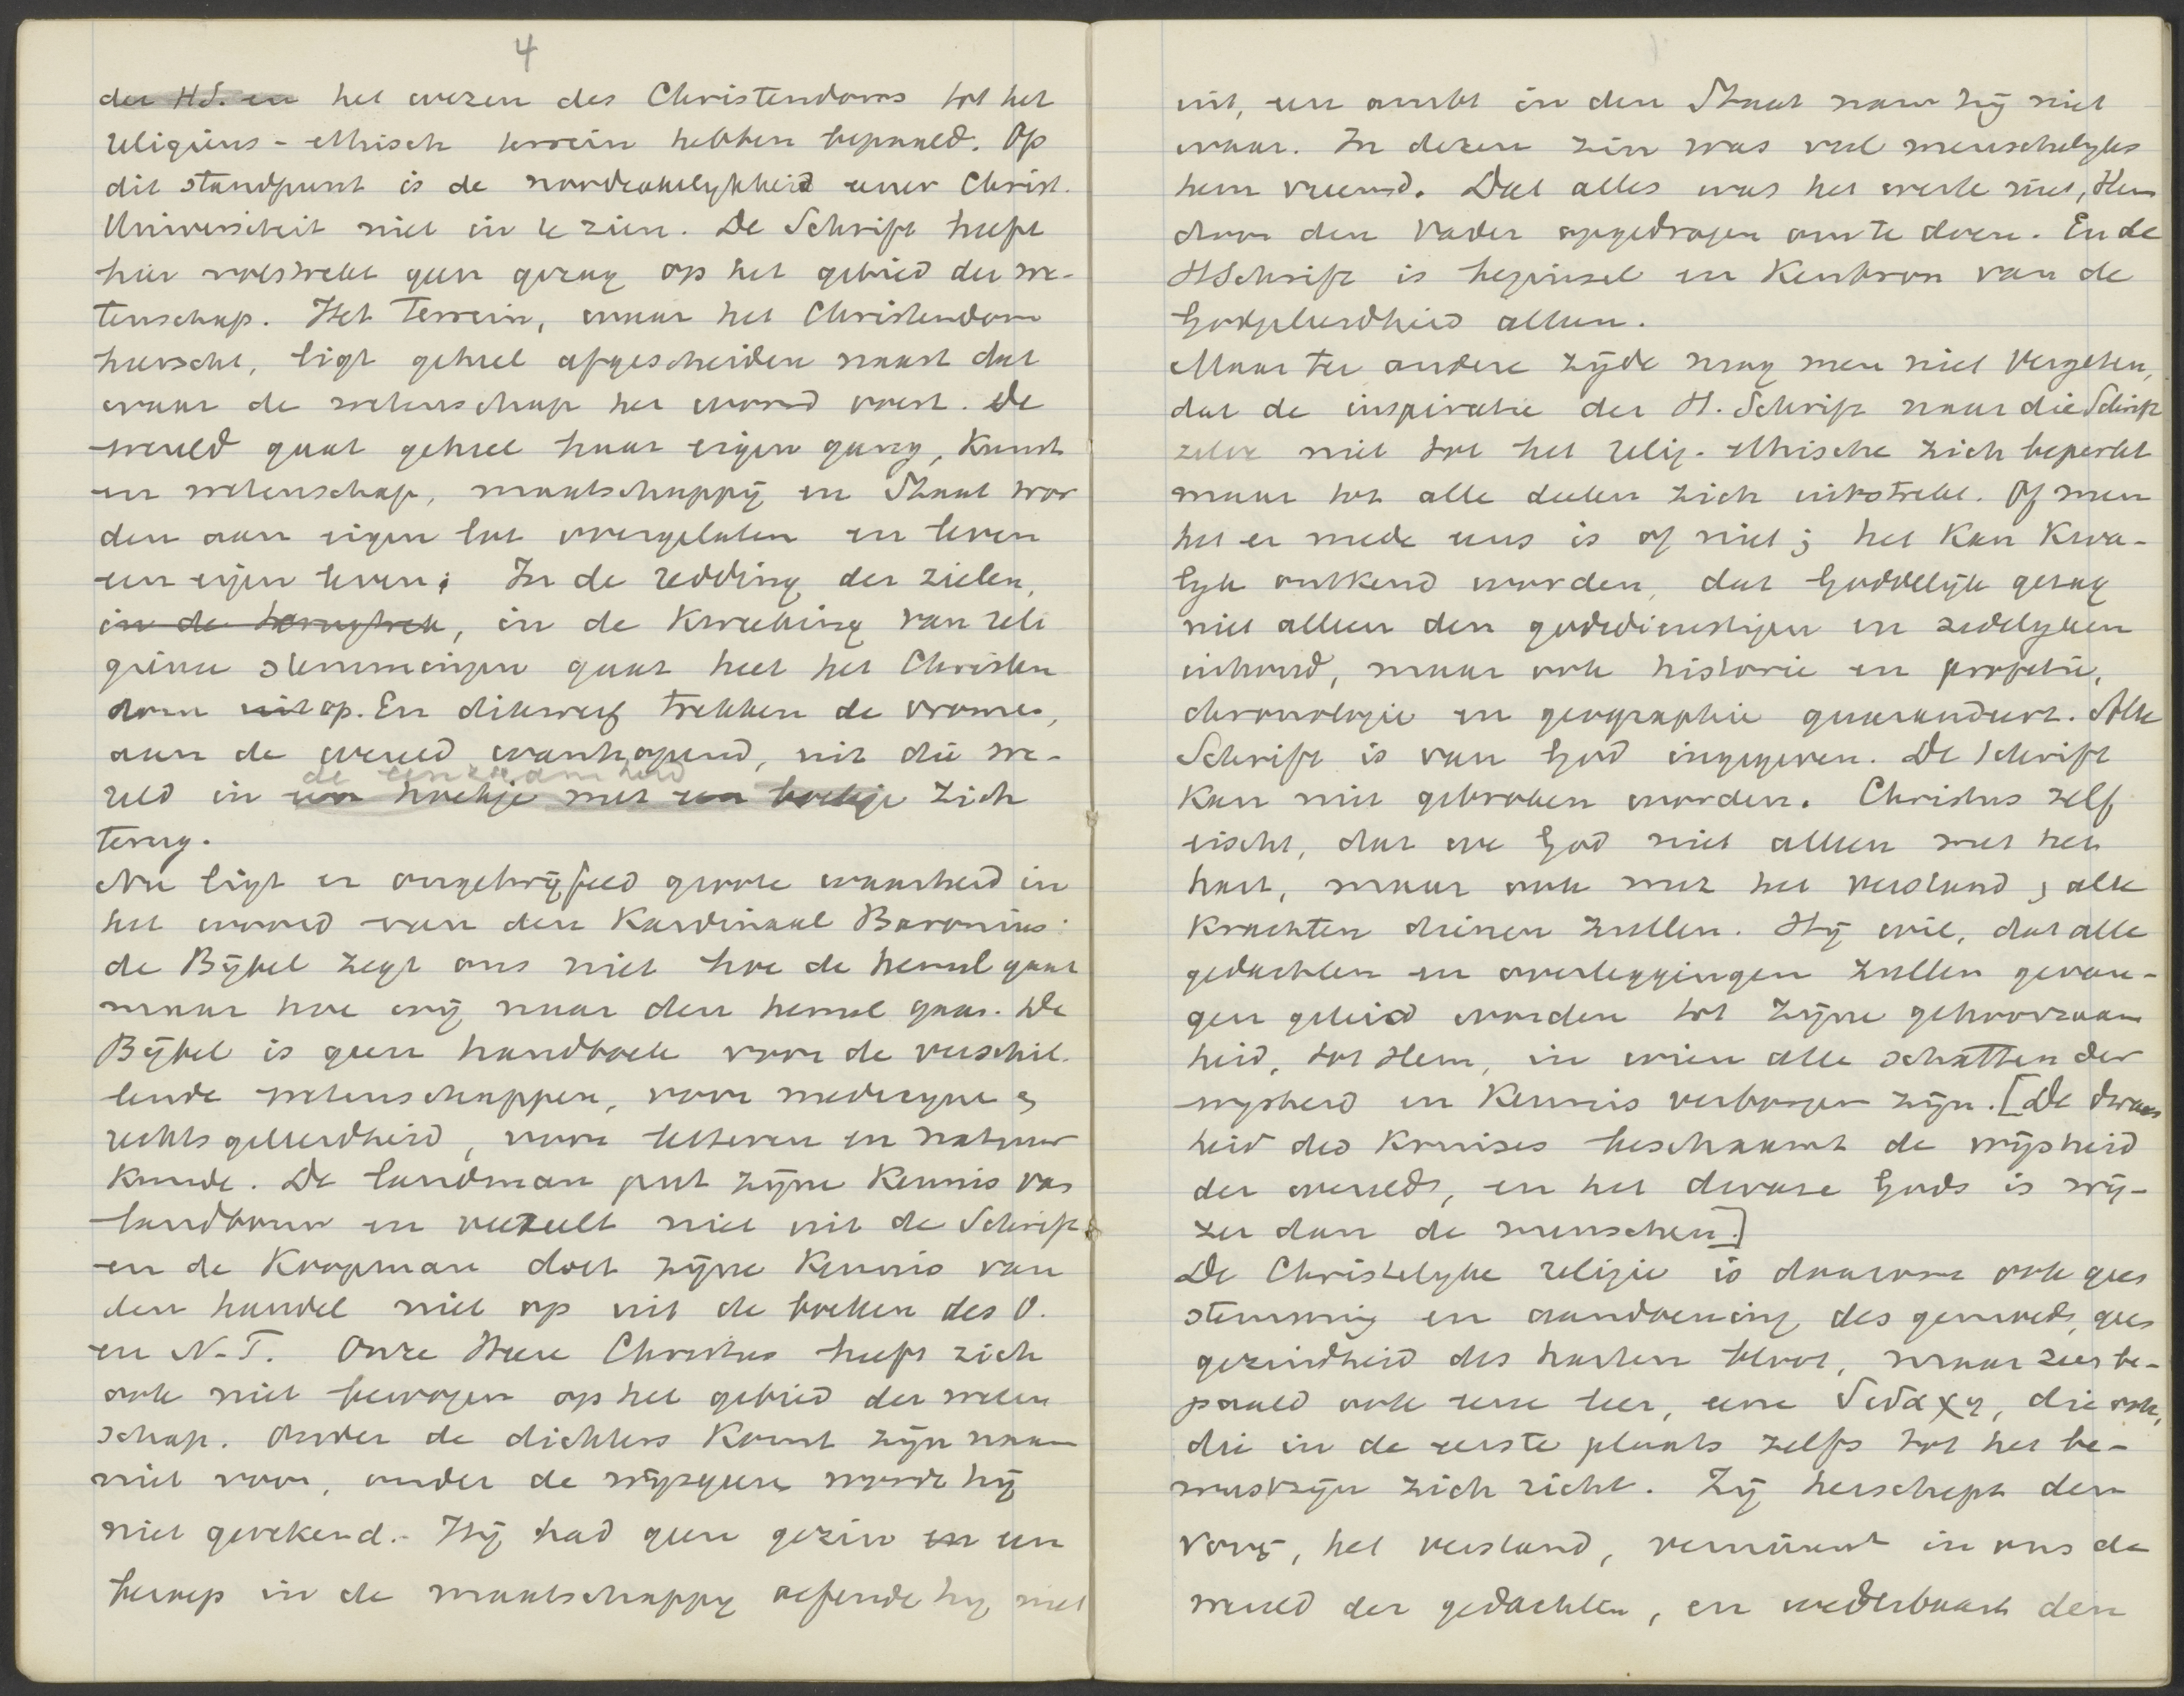 4
der HS. en het wezen des Christendoms tot het
religieus-ethisch terrein hebben bepaald. Op
dit standpunt is de noodzakelykheid eener Christ.
Universiteit niet in te zien. De Schrift heeft
hier volstrekt geen gezag op het gebied der we-
tenschap. Het terrein, waar het Christendom
heerscht, ligt geheel afgescheiden naast dat
waar de wetenschap het woord voert. De
wereld gaat geheel haar eigen gang, kunst
en wetenschap, maatschappij en Staat wor
den aan eigen lot overgelaten en leven
een eigen leven; In de redding der zielen,
in de , in de kweeking van reli
gieuse stemmingen gaat heel het Christen
dom uit op. En dikwerf trekken de vromen,
aan de wereld wanhopend, uit die we-
de eenzaamheid
reld in een hoekje met een boekje zich
terug.
Nu ligt er ongetwijfeld groote waarheid in
het woord van den Kardinaal Baronius:
de Bijbel zegt ons niet hoe de hemel gaat
maar hoe wij naar den hemel gaan. De
Bijbel is geen handboek voor de verschil-
lende wetenschappen, voor medicyne &
rechtsgeleerdheid, voor letteren en natuur
kunde. De landman put zijne kennis van
landbouw en veeteelt niet uit de Schrift
en de Koopman doet zijne kennis van
den handel niet op uit de boeken des O.
en N.T. Onze Heere Christus heeft zich
ook niet bewogen op het gebied der weten
schap. Onder de dichters komt zijn naam
niet voor, onder de wijsgeeren wordt hij
niet gerekend. Hij had geen gezin en een
beroep in de maatschappy oefende hy niet
uit, een ambt in den Staat nam hij niet
waar. In dezen zin was veel menschelyks
hem vreemd. Dat alles was het werk niet, Hem
door den Vader opgedragen om te doen. En de
HSchrift is beginsel en Kenbron van de
Godgeleerdheid alleen.
Maar ter andere zijde mag men niet vergeten,
dat de inspiratie der H. Schrift naar die Schrift
zelve niet tot het relig.-ethische zich beperkt
maar tot alle deelen zich uitstrekt. Of men
het er mede eens is of niet; het kan kwa-
lyk ontkend worden, dat Goddelijk gezag
niet alleen den godsdienstigen en zedelyken
inhoud, maar ook historie en profetie,
chronologie en geographie gewaarandeert. Alle
Schrift is van God ingegeven. De Schrift
kan niet gebroken worden. Christus zelf
eischt, dat we God niet alleen met het
hart, maar ook met het verstand & alle
krachten dienen zullen. Hij wil, dat alle
gedachten en overleggingen zullen gevan-
gen geleid worden tot zijne gehoorzaam
heid, tot Hem, in wien alle schatten der
wysheid en kennis verborgen zijn. [De dwaas
heid des Kruises beschaamt de wijsheid
der wereld, en het dwaze Gods is wij-
zer dan de menschen.]
De Christelyke religie is daarom ook geen
stemming en aandoening des gemoeds, geen
gezindheid des harten bloot, maar zeer be-
paald ook eene leer, eene διδαχη, die ook,
die in de eerste plaats zelfs tot het be-
wustzijn zich richt. Zij herschept den
νους, het verstand, vernieuwt in ons de
wereld der gedachten, en wederbaart den